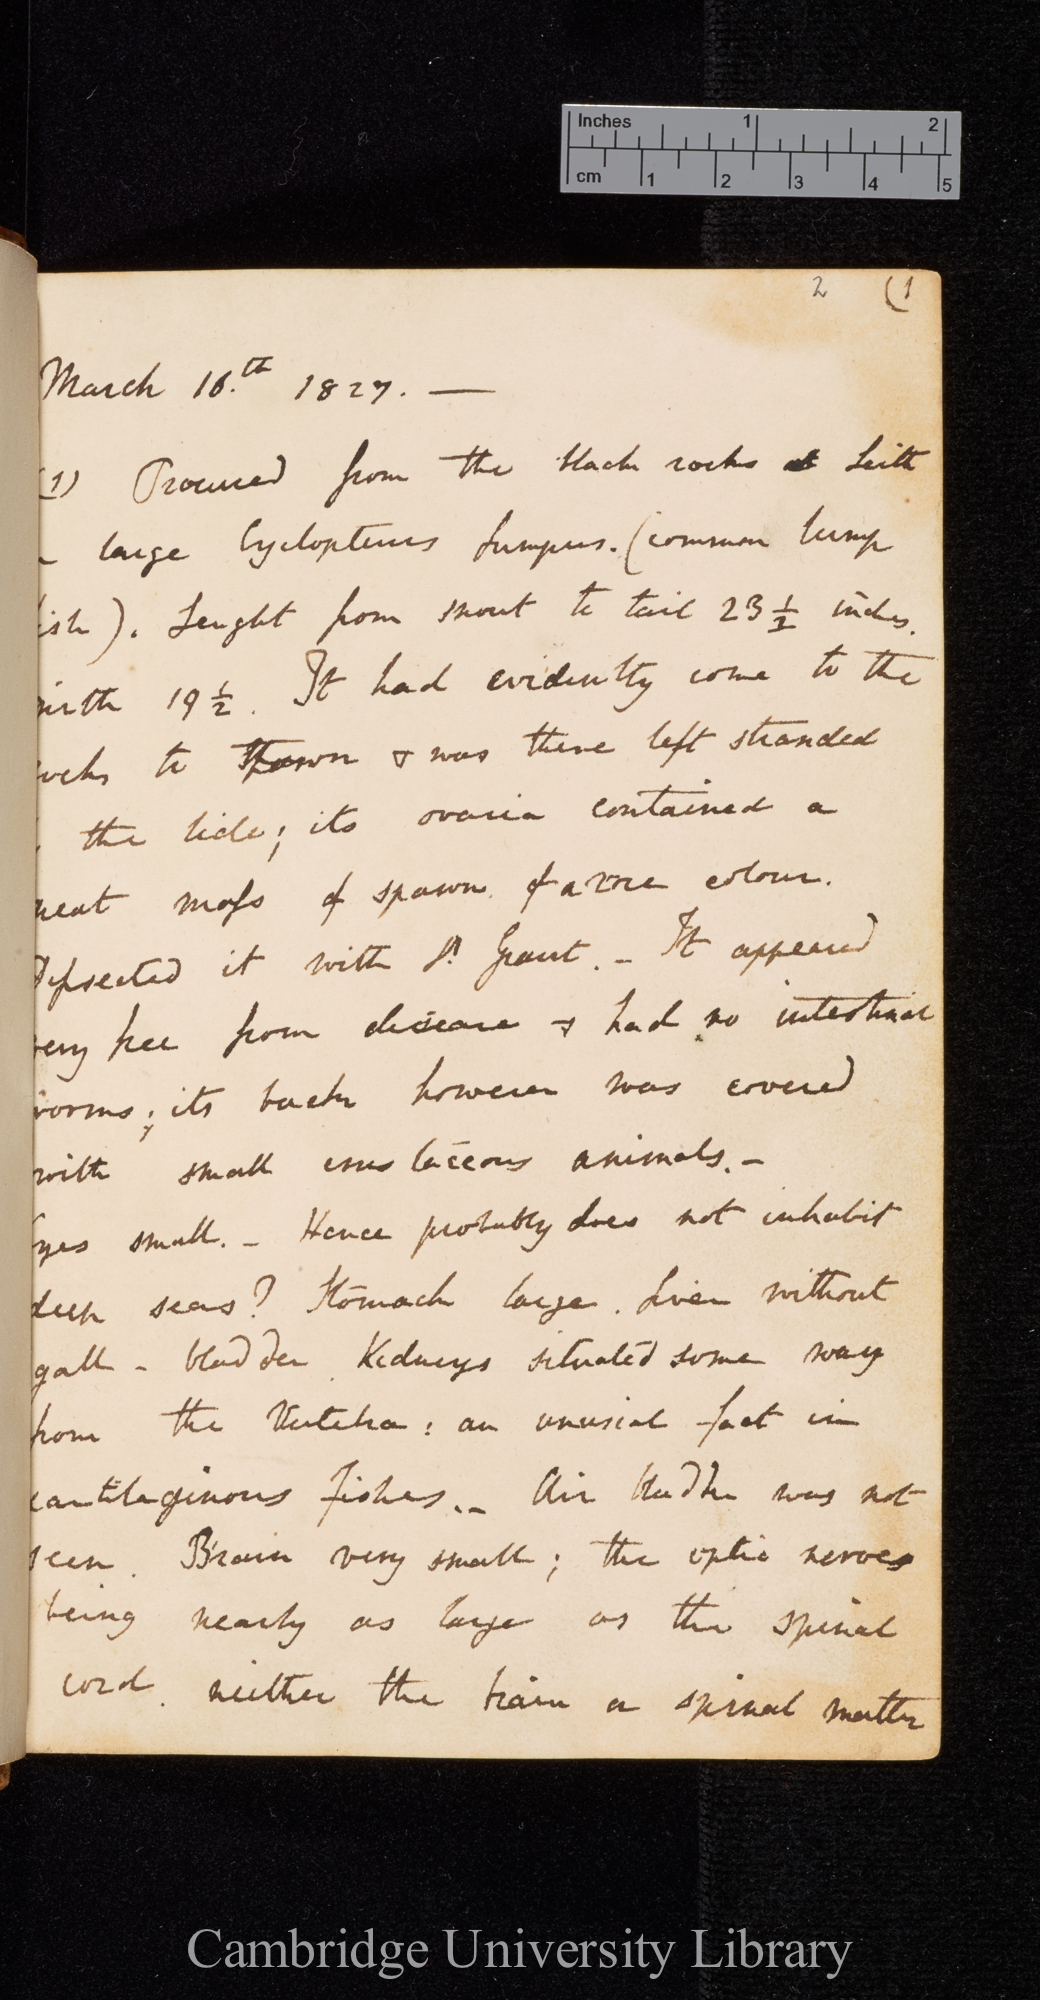 Inches 1 2
cm 1 2 3 4 5
2 (1
March 16.th 1827. —
(1) Procured from the black rocks at Leith
a large Cyclopterus Lumpus. (common lump
fish). Lenght from snout to tail 23 1/2 inches.
girth 19 1/2. It had evidently come to the
rocks to Spawn & was there left stranded
the tide; its ovaria contained a
great mass of spawn of a rose colour.
Dissected it with Dr Grant. – It appeared
very free from disease & had no intestinal
worms; its back however was covered
with small crustaceous animals. –
Eyes small. – Hence probably does not inhabit
deep seas? Stomach large. Liver without
gall - bladder. Kidneys situated some way
from the Vertebra: an unusial fact in
cartilaginous fishes. – Air bladder was not
seen. Brain very small; the optic nerves
being nearly as large as the spinal
cord. neither the brain or spinal matter
Cambridge University Library